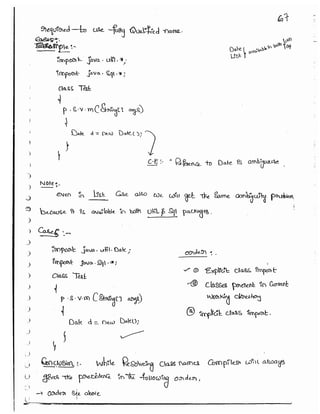 67
required to use fully Qualified name.
Case5:-
Example:-
Date } available in both
List }
import java.util.*;
import java.sql.*;
class Test
{
p.s.v.m(String[] args)
{
Date d = new Date();
}
}
C.E:- "Reference to Date is ambiguous.
Note:-
even in List Case also we will get the Same ambiguity problem
because it is available in both Util & Sql packages.
Case6:-
import java.util.Date;
import java.sql.*;
class Test
{
p.s.v.m(String[] args)
{
Date d = new Date();
}
}
order:-
✓ ① Explicit class import
② Classes present in Current
Working directory
③ implicit class import.
Conclusion:- While Resolving Class names Compiler will always
gives the precedence in the following order,
→ order see above